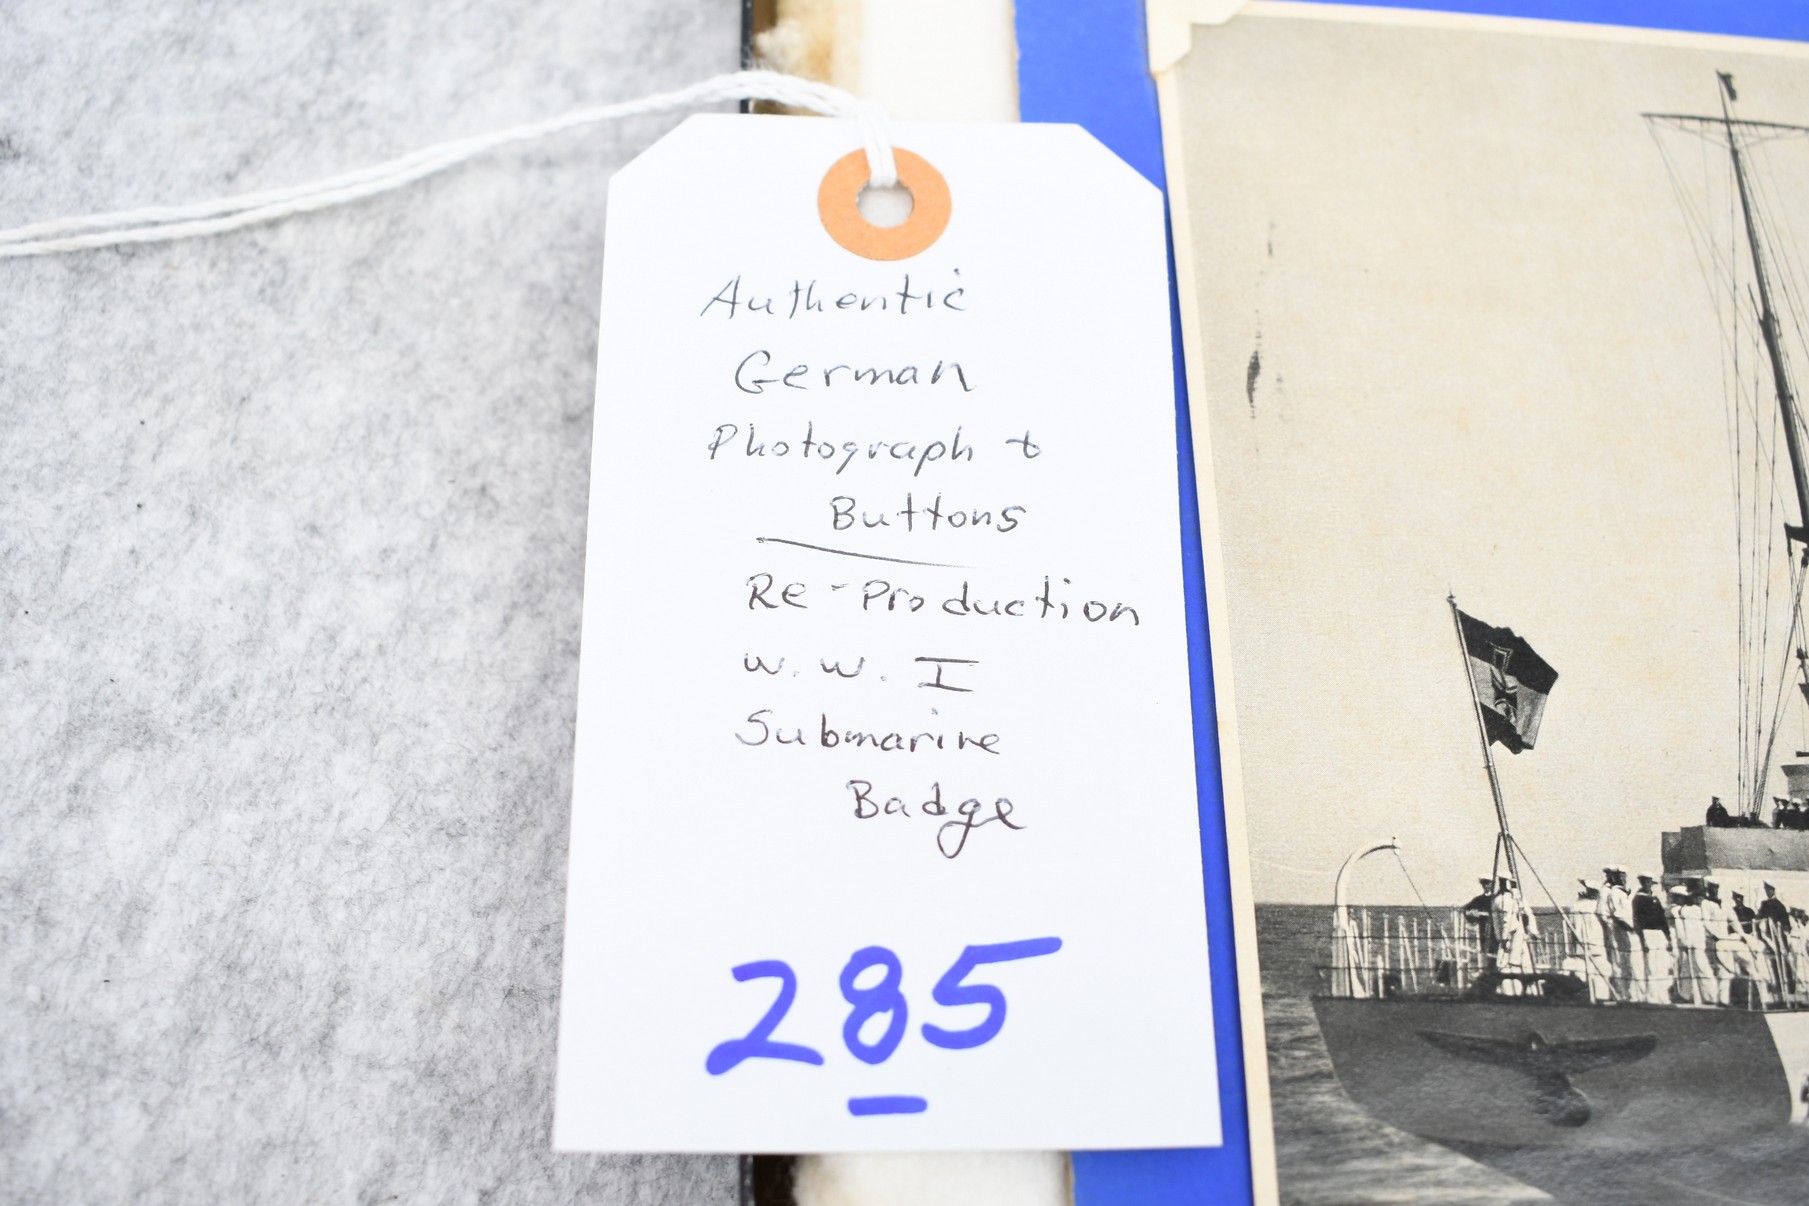 Authentic
German
Photograph &
Buttons
Re-Production
W.W. I
Submarine
Badge
285